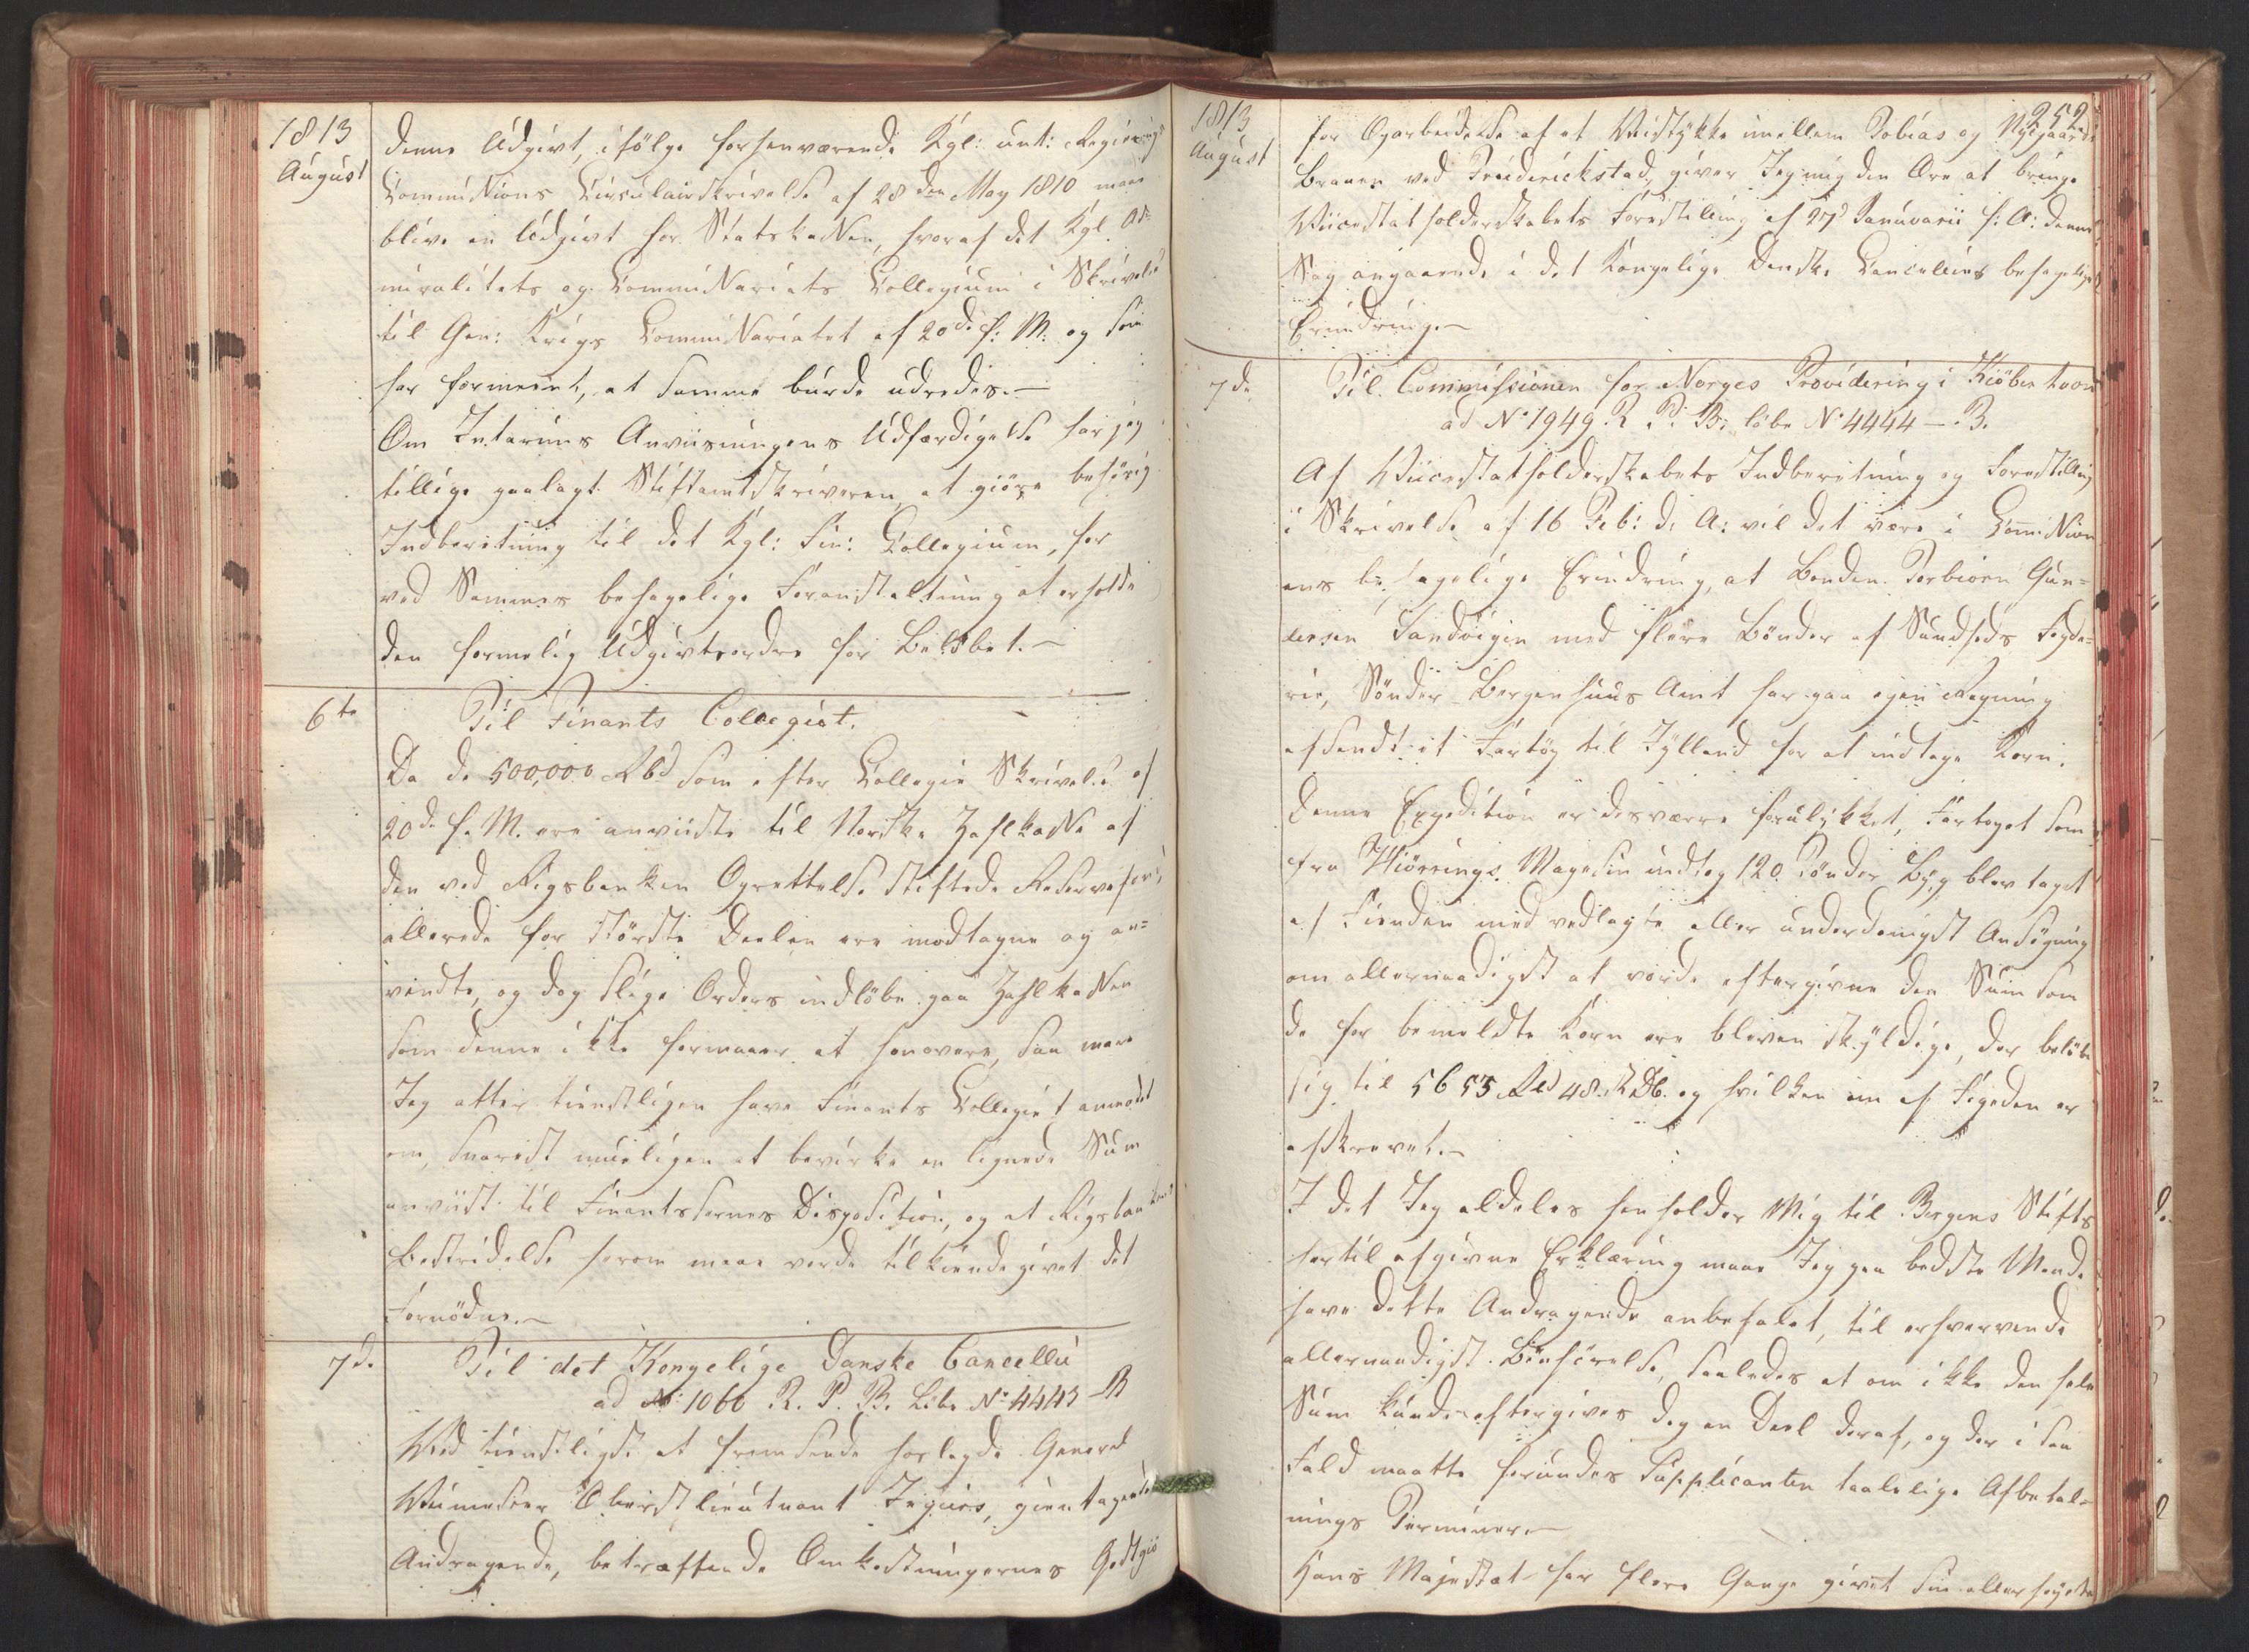 1813
August
denne Udgivt, ifölge forhenværende Kgl: unt: Regierings
Commissions Circulairskrivelse af 28den May 1810 maae
blive en Udgivt for Statskassen, hvoraf det Kgl. Ad=
miralitets og Commissariats Collegium i Skrivelse
til Gen: Krigs Commissariatet af 20de f: M: og som
har formeent, at samme burde udredes.—
Om Interims Anviisningens Udfærdigelse har jeg
tillige paalagt Stiftamtskriveren at giöre behörig
Indberetning til det Kgl: Fin: Collegium, for
ved Sammes behagelige Foranstaltning at erholde
den formelig Udgivtsordre for Belöbet.—
6te
Til Finants Collegiet.
Da de 500,000 Rbd som efter Collegie Skrivelse af
20de f. M. ere anviiste til Norske Zahlkasse af
den ved Rigsbanken Oprettelse stiftede Reservefond,
allerede for störste Deelen ere modtagne og an=
vendte, og dog slige Ordres indlöbe paa Zahlkassen
som denne ikke formaaer at honorere, saa maae
Jeg atter tienstligen have Finants Collegiet anmodet
om, snarest mueligen at bevirke en lignende Sum
anviist til Finantsernes Disposition, og at Rigsbankens
Bestyrelse herom maae vorde tilkiendegivet det
Fornödne.—
7de
Til det Kongelige Danske Cancellie
ad No 1066 R. P. B. Löbe No 4443 - B
Ved tienstligst at fremsende hoslagde General
Veimester Oberstlieutnant gientagende
Andragende, betræffende Omkostningernes Godtgiö
252
1813
August
for Oparbeidelse af et Veistykke imellem Tobias og Nygaards
Broen ved Friderichstad, giver Jeg mig den Ære at bringe
Viicestatholderskabets Forestilling af 27de Januarii f: A: denne
Sag angaaende i det Kongelige Danske Cancellies behagelige
Erindring.—
7de
Til Commissionen for Norges Providering i Kiöbenhavn
ad No 1949. R. P. B. löbe No 4444 —. B.
Af Viicestatholderskabets Indberetning og Forestilling
i Skrivelse af 16 Feb: d. A: vil det være i Commission
ens behagelige Erindring, at Bonden Torbiörn Gun=
dersen Sandvigen med flere Bönder af Sundfods Fogde=
rie, Sönder Bergenhuus Amt har paa egen Regning
afsendt et Fartöy til Jylland for at indtage Korn.
Denne Expedition er desværre forulykket, Fartöyet som
fra Hiörrings Magasin indtog 120 Tönder Byg blev taget
af Fienden med vedlagte allerunderdanigst Ansögning
om allernaadigst at vorde eftergivne den Sum som
de for bemeldte Korn ere bleven skyldige, der belöbe
sig til 5653 Rd 48. og hvilken nu af Fogeden er
afkrævet.—
I det Jeg aldeles henholder Mig til Bergens Stifts
hertil afgivne Erklæring maae Jeg paa bedste Maade
have dette Andragende anbefalet, til erhvervende
allernaadigst Bönhörelse, saaledes at om ikke den hele
Sum kunde eftergives dog en Deel deraf, og der i saa
Fald maatte forundes Supplicanten taalelige Afbetal=
nings Terminer.—
Hans Majestæt har flere Gange givet sin allerhöyeste